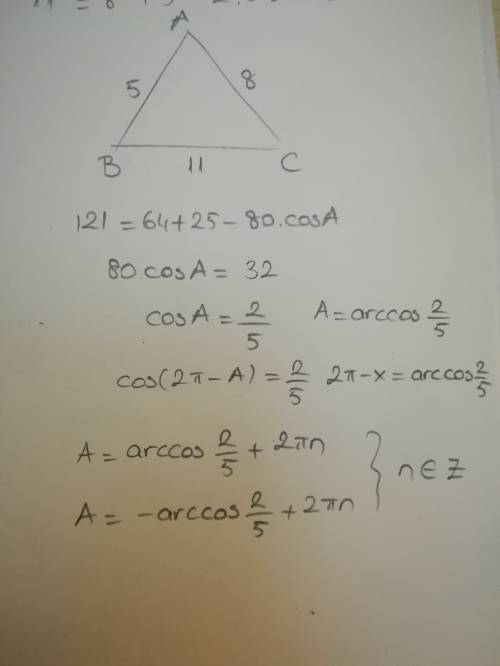 A
5
8
B
11
C
121 = 64 + 25 - 80.cosA
80.cosA = 32
cosA = 2/5 A = arccos 2/5
cos(2π - A) = 2/5 2π - x = arccos 2/5
A = arccos 2/5 + 2πn
A = -arccos 2/5 + 2πn } n ∈ Z